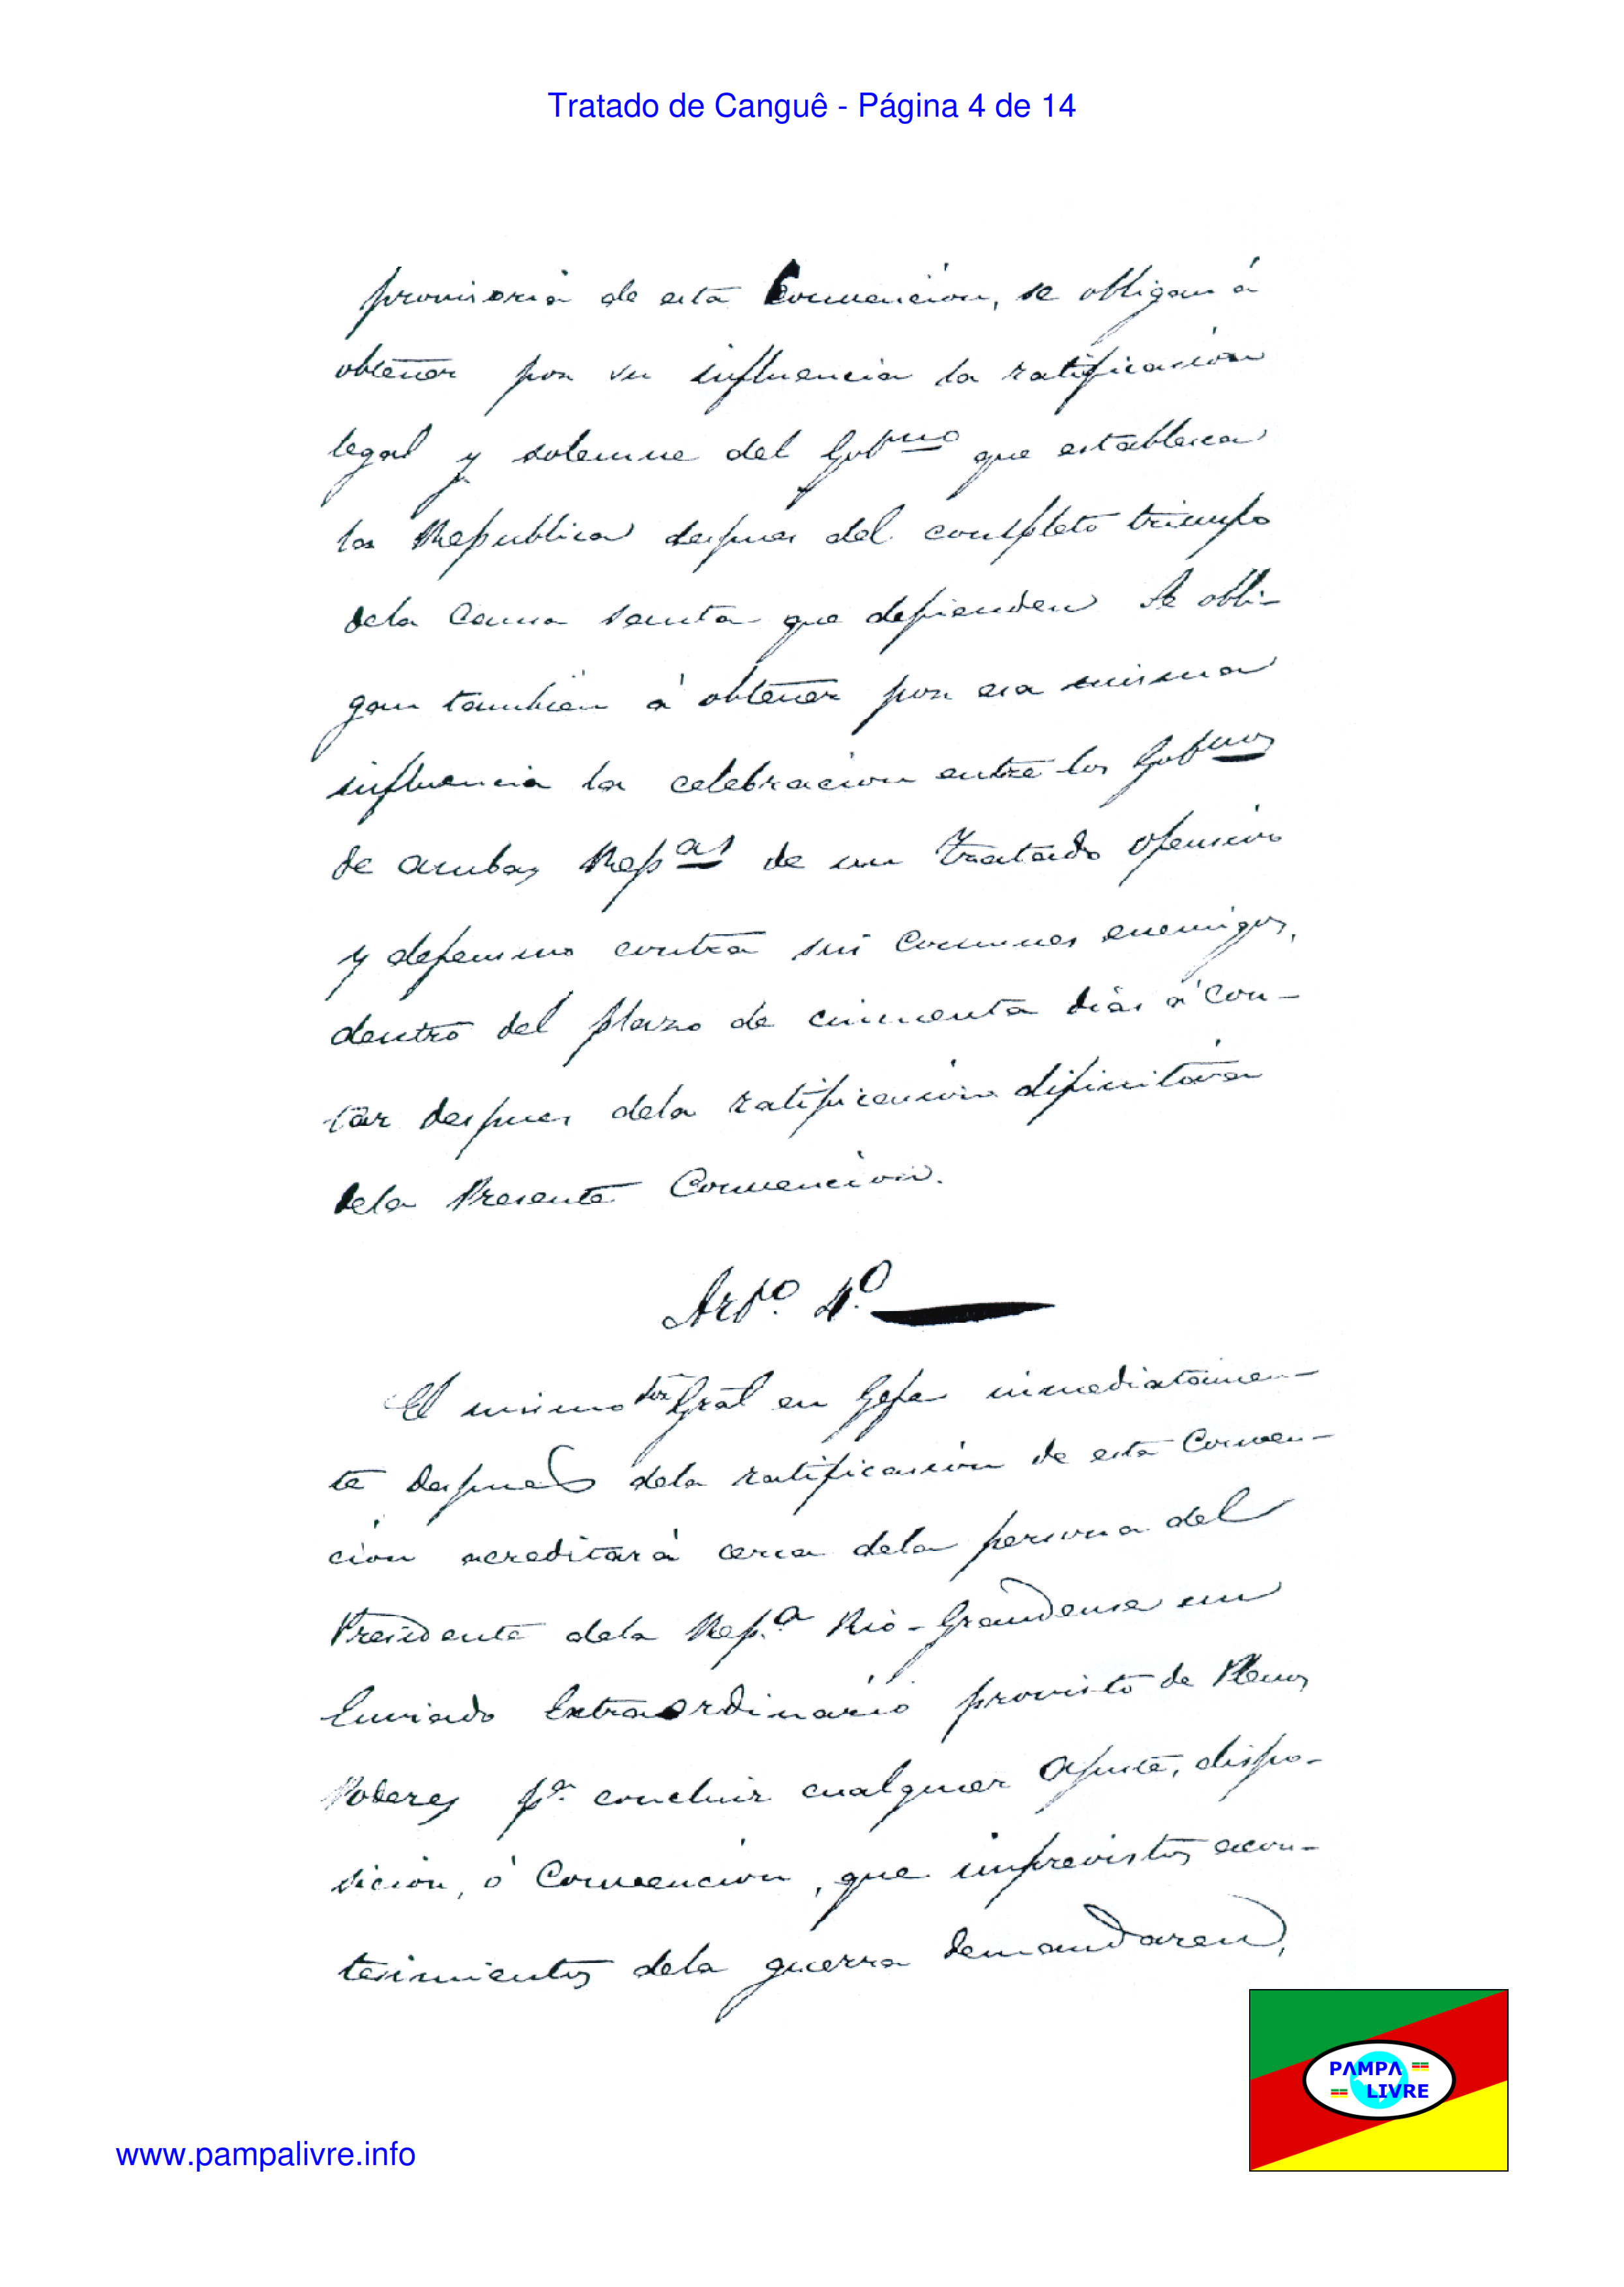 Tratado de Canguê - Página 4 de 14
provisoria de esta Convención, se obligan á
obtener por su influencia la ratificasión
legal y solemne del Gob^rno que establesca
la Republica despues del completo triunfo
dela Causa santa que defienden Se obli-
gan tambien á obtener por esa misma
influencia la celebracion entre los Gob^rnos
de ambas Rep^as de un Tratado ofensivo
y defensivo contra sus Comunes enemigos,
dentro del plazo de cincuenta dias á con-
tar despues dela ratificación difinitiva
dela Presente Convención.
Art^o. 4.^o
El mismo Sor Gral en Gefe inmediatamen-
te despues dela ratificasión de esta Conven-
ción acreditará cerca dela persona del
Presidente dela Rep.^a Rio-Grandense un
Enviado Extraordinario provisto de Plenos
Poderes p^a. concluir cualquier Ajuste, dispo-
sicion, ó Convención, que imprevistos acon-
tesimientos dela guerra demandaren,
PAMPA
LIVRE
www.pampalivre.info